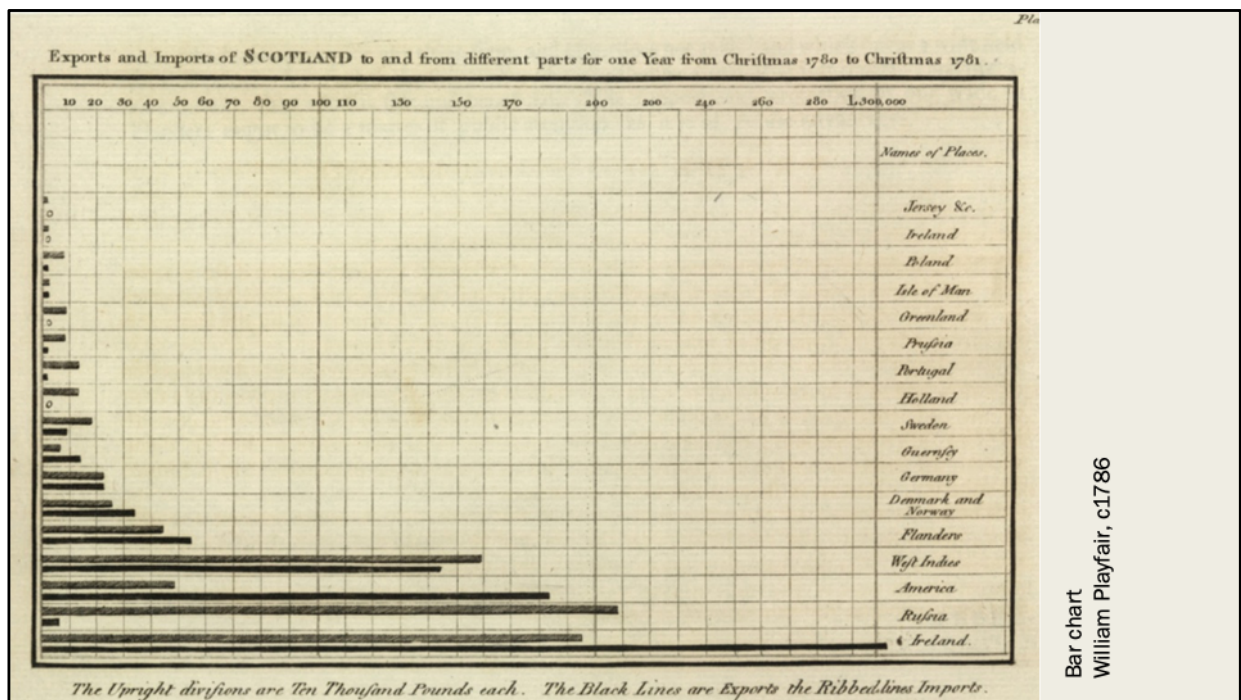 Pla
Exports and Imports of SCOTLAND to and from different parts for one Year from Chriſtmas 1780 to Chriſtmas 1781.
10 20 30 40 50 60 70 80 90 100 110 130 150 170 200 200 240 260 280 L300,000
Names of Places.
Jerſey &c.
0
Ireland
0
Poland
Iſle of Man
Greenland
0
Pruſsia
Portugal
Holland
0
Sweden
Guernſey
Germany
Denmark and
Norway
Flanders
Weſt Indies
America
Ruſsia
Ireland.
The Upright diviſions are Ten Thouſand Pounds each. The Black Lines are Exports the Ribbed lines Imports.
Bar chart
William Playfair, c1786